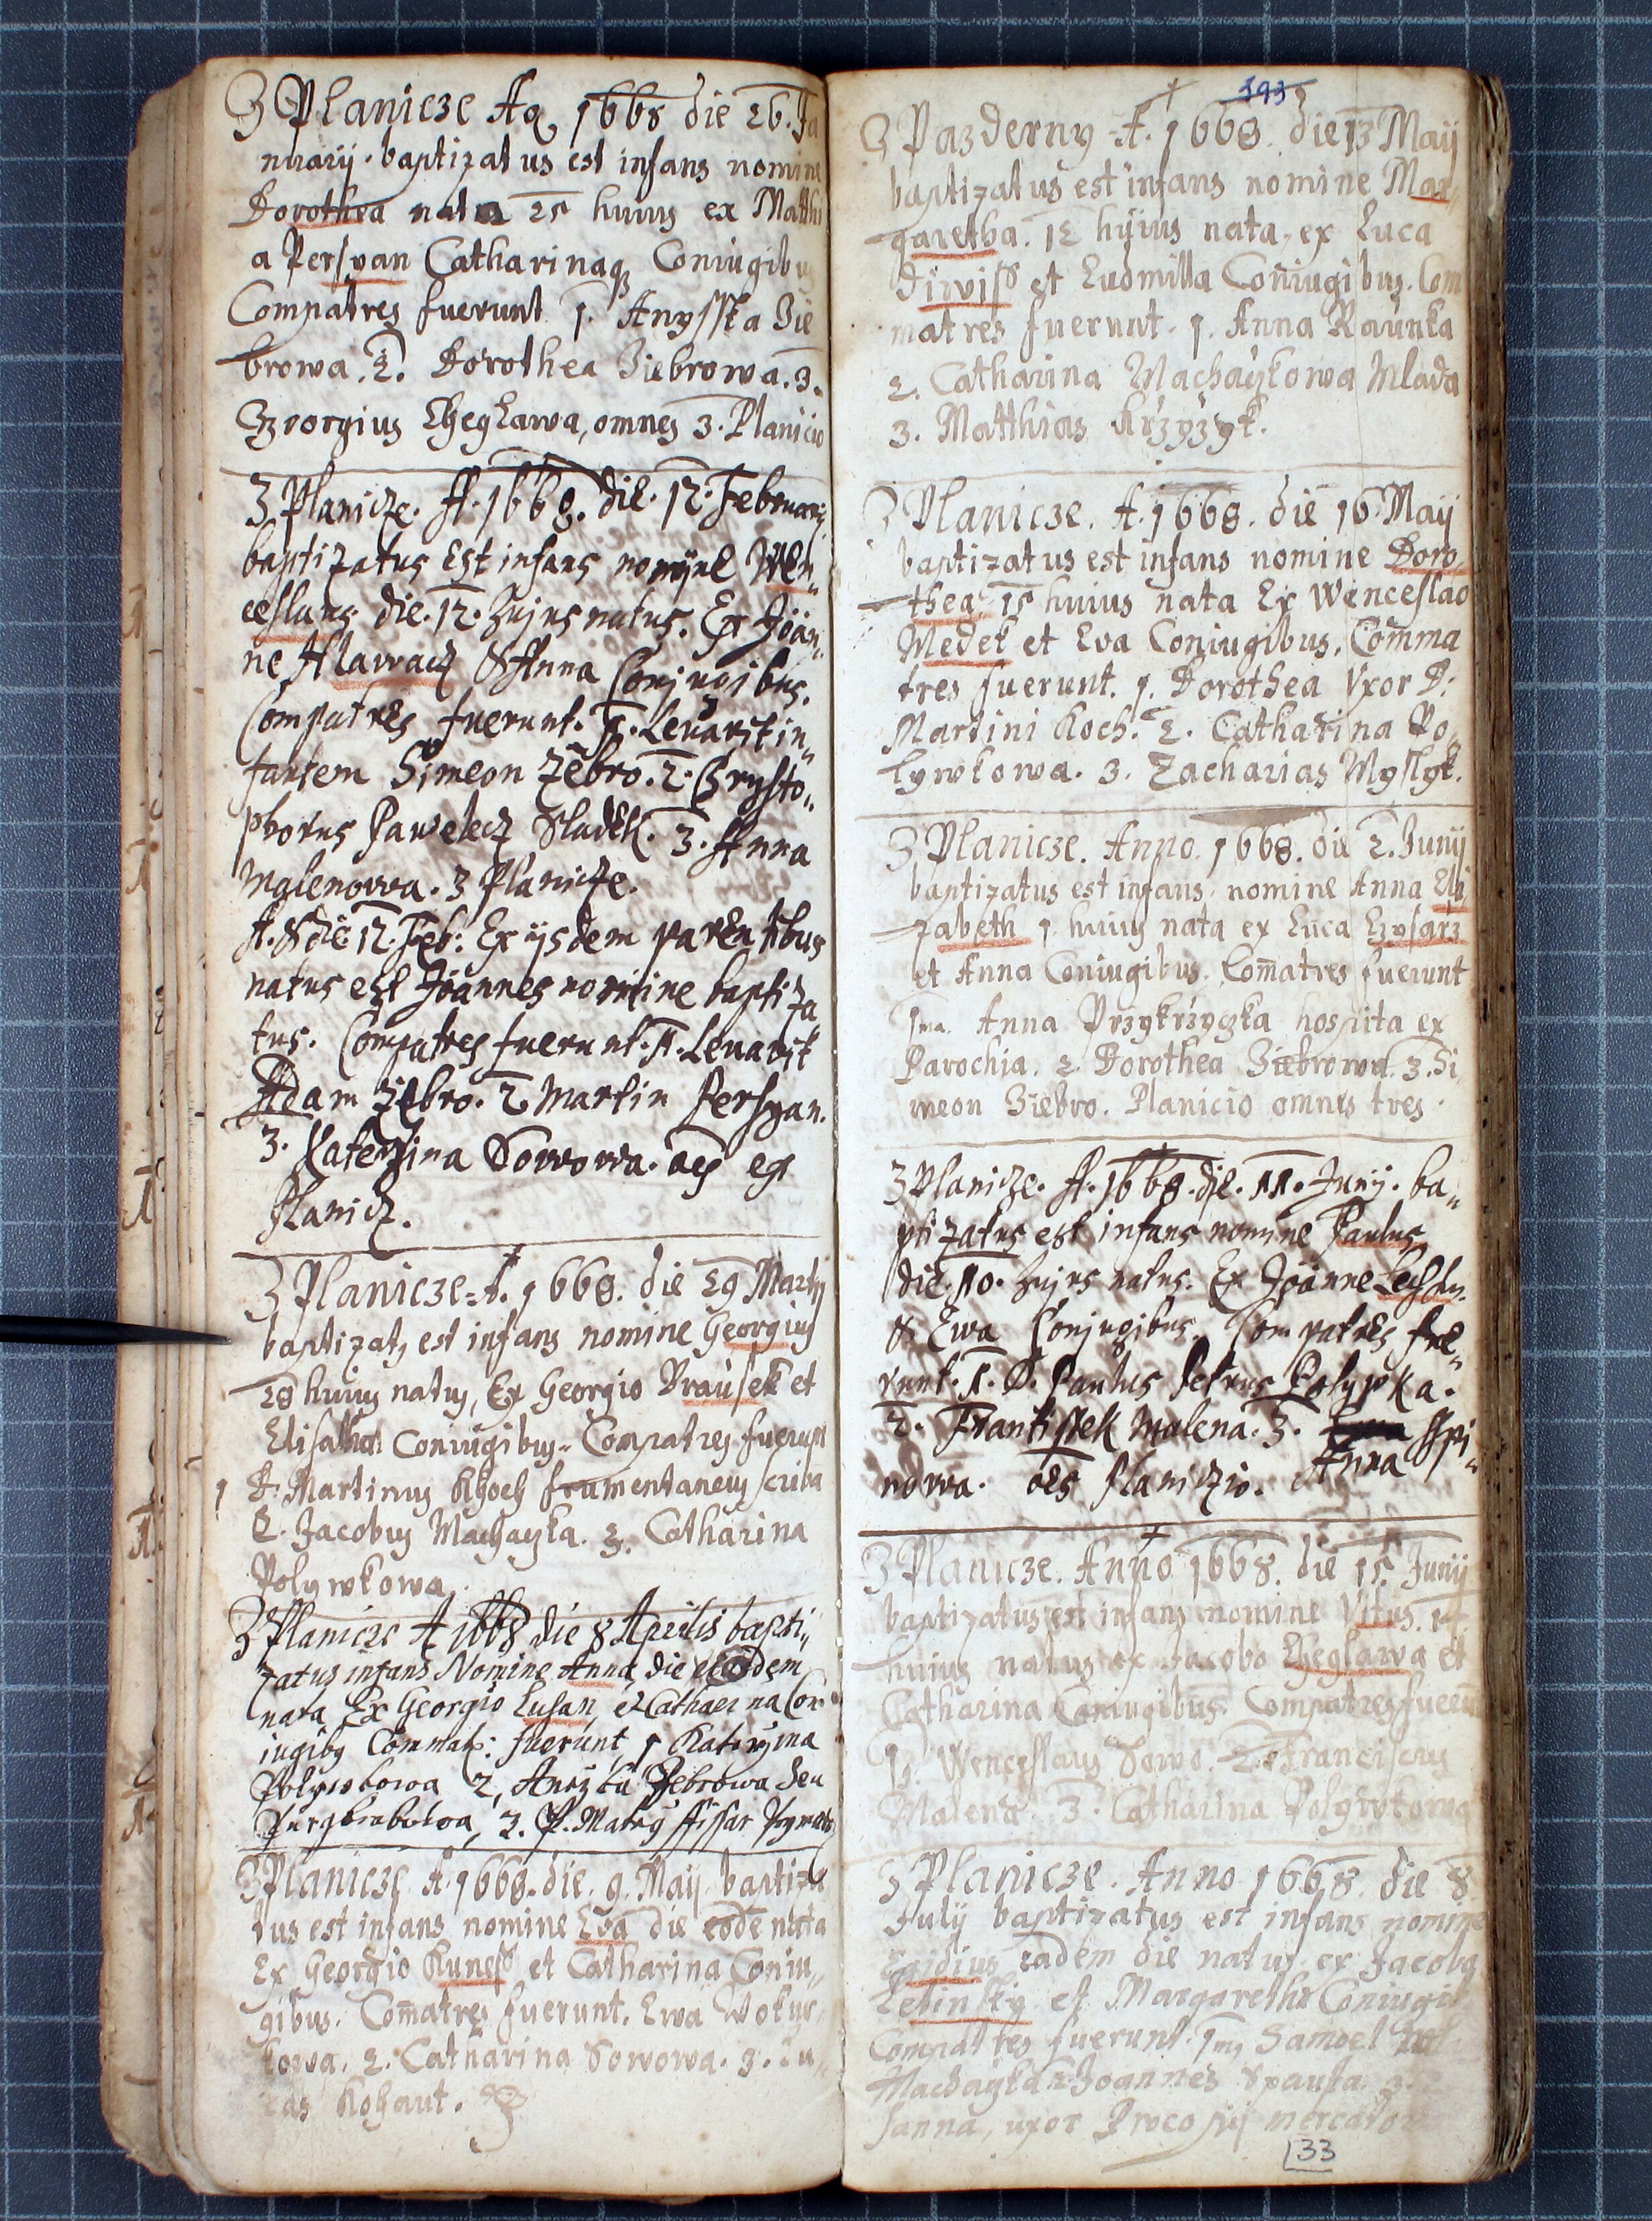 Z Planicze Aq 1668 die 26. Ja
nuarij baptizatus est infans nomine
Dorothea nata 25 huius ex Matthi
a Persyan Catharinaq Coniugibus
Compatres fuerunt 1. Anysska Zie
browa. 2. Dorothea Ziebrowa. 3.
Georgius Cheglawa, omnes 3. Planicio
Z Planicze. A. 1668. die. 12. Februarij
baptizatus est infans nomine Wen„
ceslaus die. 12. hujus natus. Ex Joan„
ne Hlawacz & Anna Conjugibus.
Compatres fuerunt. 1. Levavit in„
fantem Simeon Zebro. 2. Chrysto„
phorus Pawelecz Sladek. 3. Anna
Malenowa. Z Planicze.
A. & die 12. Feb: Ex ijsdem parentibus
natus est Joannes nomine baptiza
tus. Compatres fuerunt. 1. Levavit
Adam Zebro. 2 Martin Persyan.
3. Katerzina Sowowa. oes ex
Planicz.
Z Planicze A. 1668. die 29 Martij
baptizatq est infans nomine Georgius
28 huius natus, Ex Georgio Brausek et
Elisabetha Coniugibus. Compatres fuerunt
1 D. Martinus Khoch frumentaneus scriba
2. Jacobus Machayka. 3. Catharina
Polywkowa.
Z Planicze A 1668 die 8 Aprilis bapti„
zatus infans Nomine Anna, die eodem
nata Ex Georgio Lusan, et Catharina Con
iugibq Commats: fuerunt, 1 Katerzyna
Polywkowa 2, Anyzka Zebrowa den
Purgkrabowa, 3. P. Matey
Z Planicze A. 1668. die. 9. Maij baptiza
tus est infans nomine Eva die eode nata
Ex Georgio Kuness et Catharina Coniu„
gibus. Comatres fuerunt. Ewa Wokur
kowa. 2. Catharina Sowowa. 3. Lu„
cas Kohaut.
393
Z Pazderny A. 1668. die 13 Maij
baptizatus est infans nomine Mar
garetha. 12 hujus nata. ex Luca
Dirwiss et Ludmilla Coniugibus. Com
matres fuerunt. 1. Anna Raunka
2. Catharina Machaykowa Mlada
3. Matthias Krzyzyk.
Z Planicze. A. 1668. die 16 Maij
baptizatus est infans nomine Doro
thea 15 huius nata Ex Wenceslao
Medek et Eva Coniugibus. Comma
tres fuerunt. 1. Dorothea Vxor D:
Martini Koch. 2. Catharina Po
lywkowa. 3. Zacharias Myslyk.
Z Planicze. Anno. 1668. die 2. Junij
baptizatus est infans nomine Anna Eli
zabeth 1 huius nata ex Luca
et Anna Coniugibus. Comatres fuerunt
1ma. Anna Przykrzyczka hospita ex
Parochia. 2. Dorothea Ziebrowa. 3. Si
meon Ziebro. Planicio omnes tres.
Z Planicze. A. 1668. die. 11. Junij. ba„
ptizatus est infans nomine Paulus
die. 10. hujus natus. Ex Joanne
& Ewa Conjugibus. Compatres fue„
runt. 1. D. Paulus Petrus Polypka.
2. Frantissek Malena. 3. Anna Sspi„
nowa. oes Planiczio.
Z Planicze. Anno 1668. die 15. Junij
baptizatus est infans nomine Vitus. 14.
huius natus ex Jacobo Cheglawa et
Catharina Coniugibus. Compatres fuerut
1. Wenceslaus Sowa. 2. Franciscus
Malena. 3. Catharina Polywkowa
Z Planicze. Anno 1668. die 8.
Julij baptizatus est infans nomine
Egidius eadem die natus ex Jacobo
Letinsky et Margaretha Coniugib
Compatres fuerunt. 1mq Samoel
Machayka 2. Joannes Spausta 3.
Sanna, uxor Procopij mercator
33